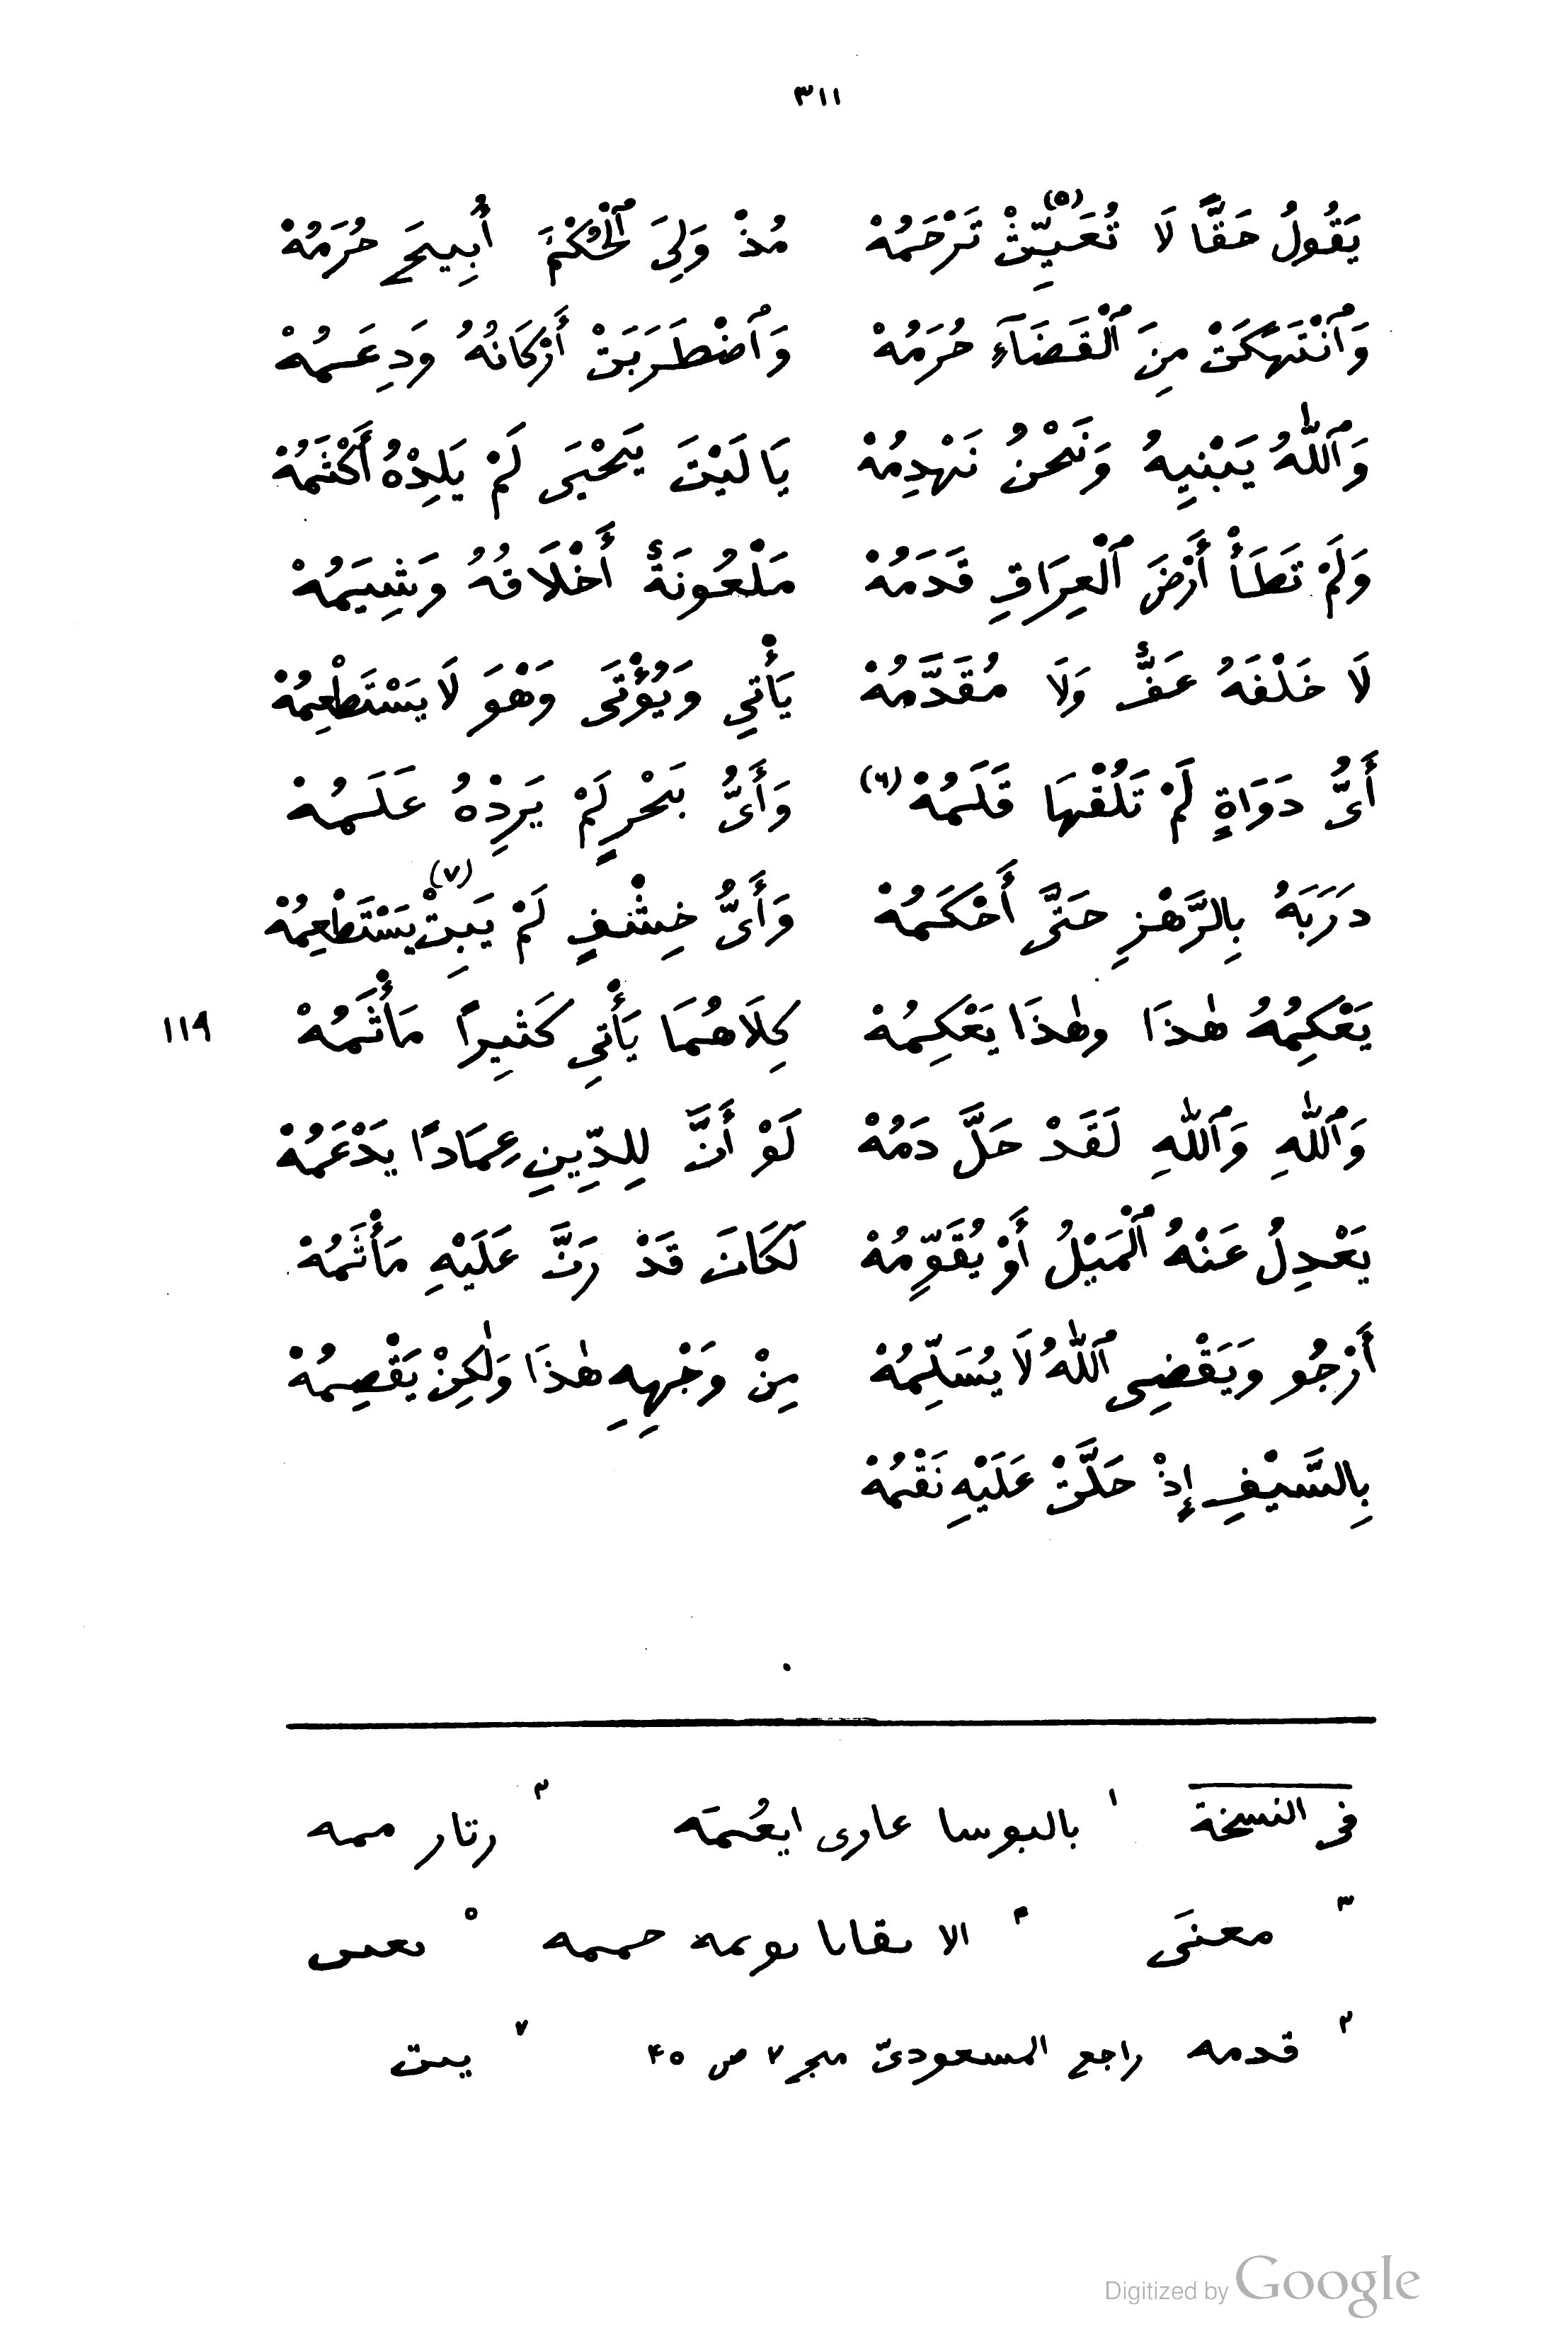 ٣١١
يَقُولُ حَقًّا لَا تُعَيِّثْ(٥) تَرْحَمُهْ مُذْ وَلِيَ ٱلْحُكْمَ أُبِيحَ حُرَمُهْ
وَٱنْتَهَكَتْ مِنَ ٱلْقَضَآءِ حُرَمُهْ وَٱضْطَرَبَتْ أَرْكَانُهُ وَدِعَمُهْ
وَٱللّٰهُ يَبْنِيهُ وَنَحْنُ نَهْدِمُهْ يَا لَيْتَ يَحْيَى لَمْ يَلِدْهُ أَكْثَمُهْ
وَلَمْ تَطَأْ أَرْضَ ٱلْعِرَاقِ قَدَمُهْ مَلْعُونَةٌ أَخْلَاقُهُ وَشِيَمُهْ
لَا خَلْفَهُ عَفٌّ وَلَا مُقَدَّمُهْ يَأْتِي وَيُؤْتَى وَهْوَ لَا يَسْتَطْعِمُهْ
أَىُّ دَوَاةٍ لَمْ تَلُقْهَا قَلَمُهْ(٦) وَأَىُّ بَحْرٍ لَمْ يَرِدْهُ عَلَمُهْ
دَرَبَهُ بِالرَّهْزِ حَتَّى أَحْكَمُهْ وَأَىُّ خِشْفٍ لَمْ يَبِتْ(٧) يَسْتَطْعِمُهْ
يَعْكِمُهُ هٰذَا وهٰذَا يَعْكِمُهْ كِلَاهُمَا يَأْتِي كَثِيرًا مَأْثَمُهْ ١١٩
وَٱللّٰهِ وَٱللّٰهِ لَقَدْ حَلَّ دَمُهْ لَوْ أَنَّ لِلدِّينِ عِمَادًا يَدْعَمُهْ
يَعْدِلُ عَنْهُ ٱلْمَيْلُ أَوْ يُقَوِّمُهْ لَكَانَ قَدْ رَنَّ عَلَيْهِ مَأْثَمُهْ
أَرْجُو وَيَقْضِى ٱللّٰهُ لَا يُسَلِّمُهْ مِنْ وَجْهِهِ هٰذَا وَلٰكِنْ يَقْصِمُهْ
بِالسَّيْفِ إِذْ حَلَّتْ عَلَيْهِ نَقْمُهْ
في النسخة ١ بالبوسا عاوى ايعُمَه ٢ رتار ممه
٣ معنَى ٤ الا ٥
٦ قدمه راجع المسعوديّ مجر ٧ ص ٤٥ ٧ يبت
Digitized by Google